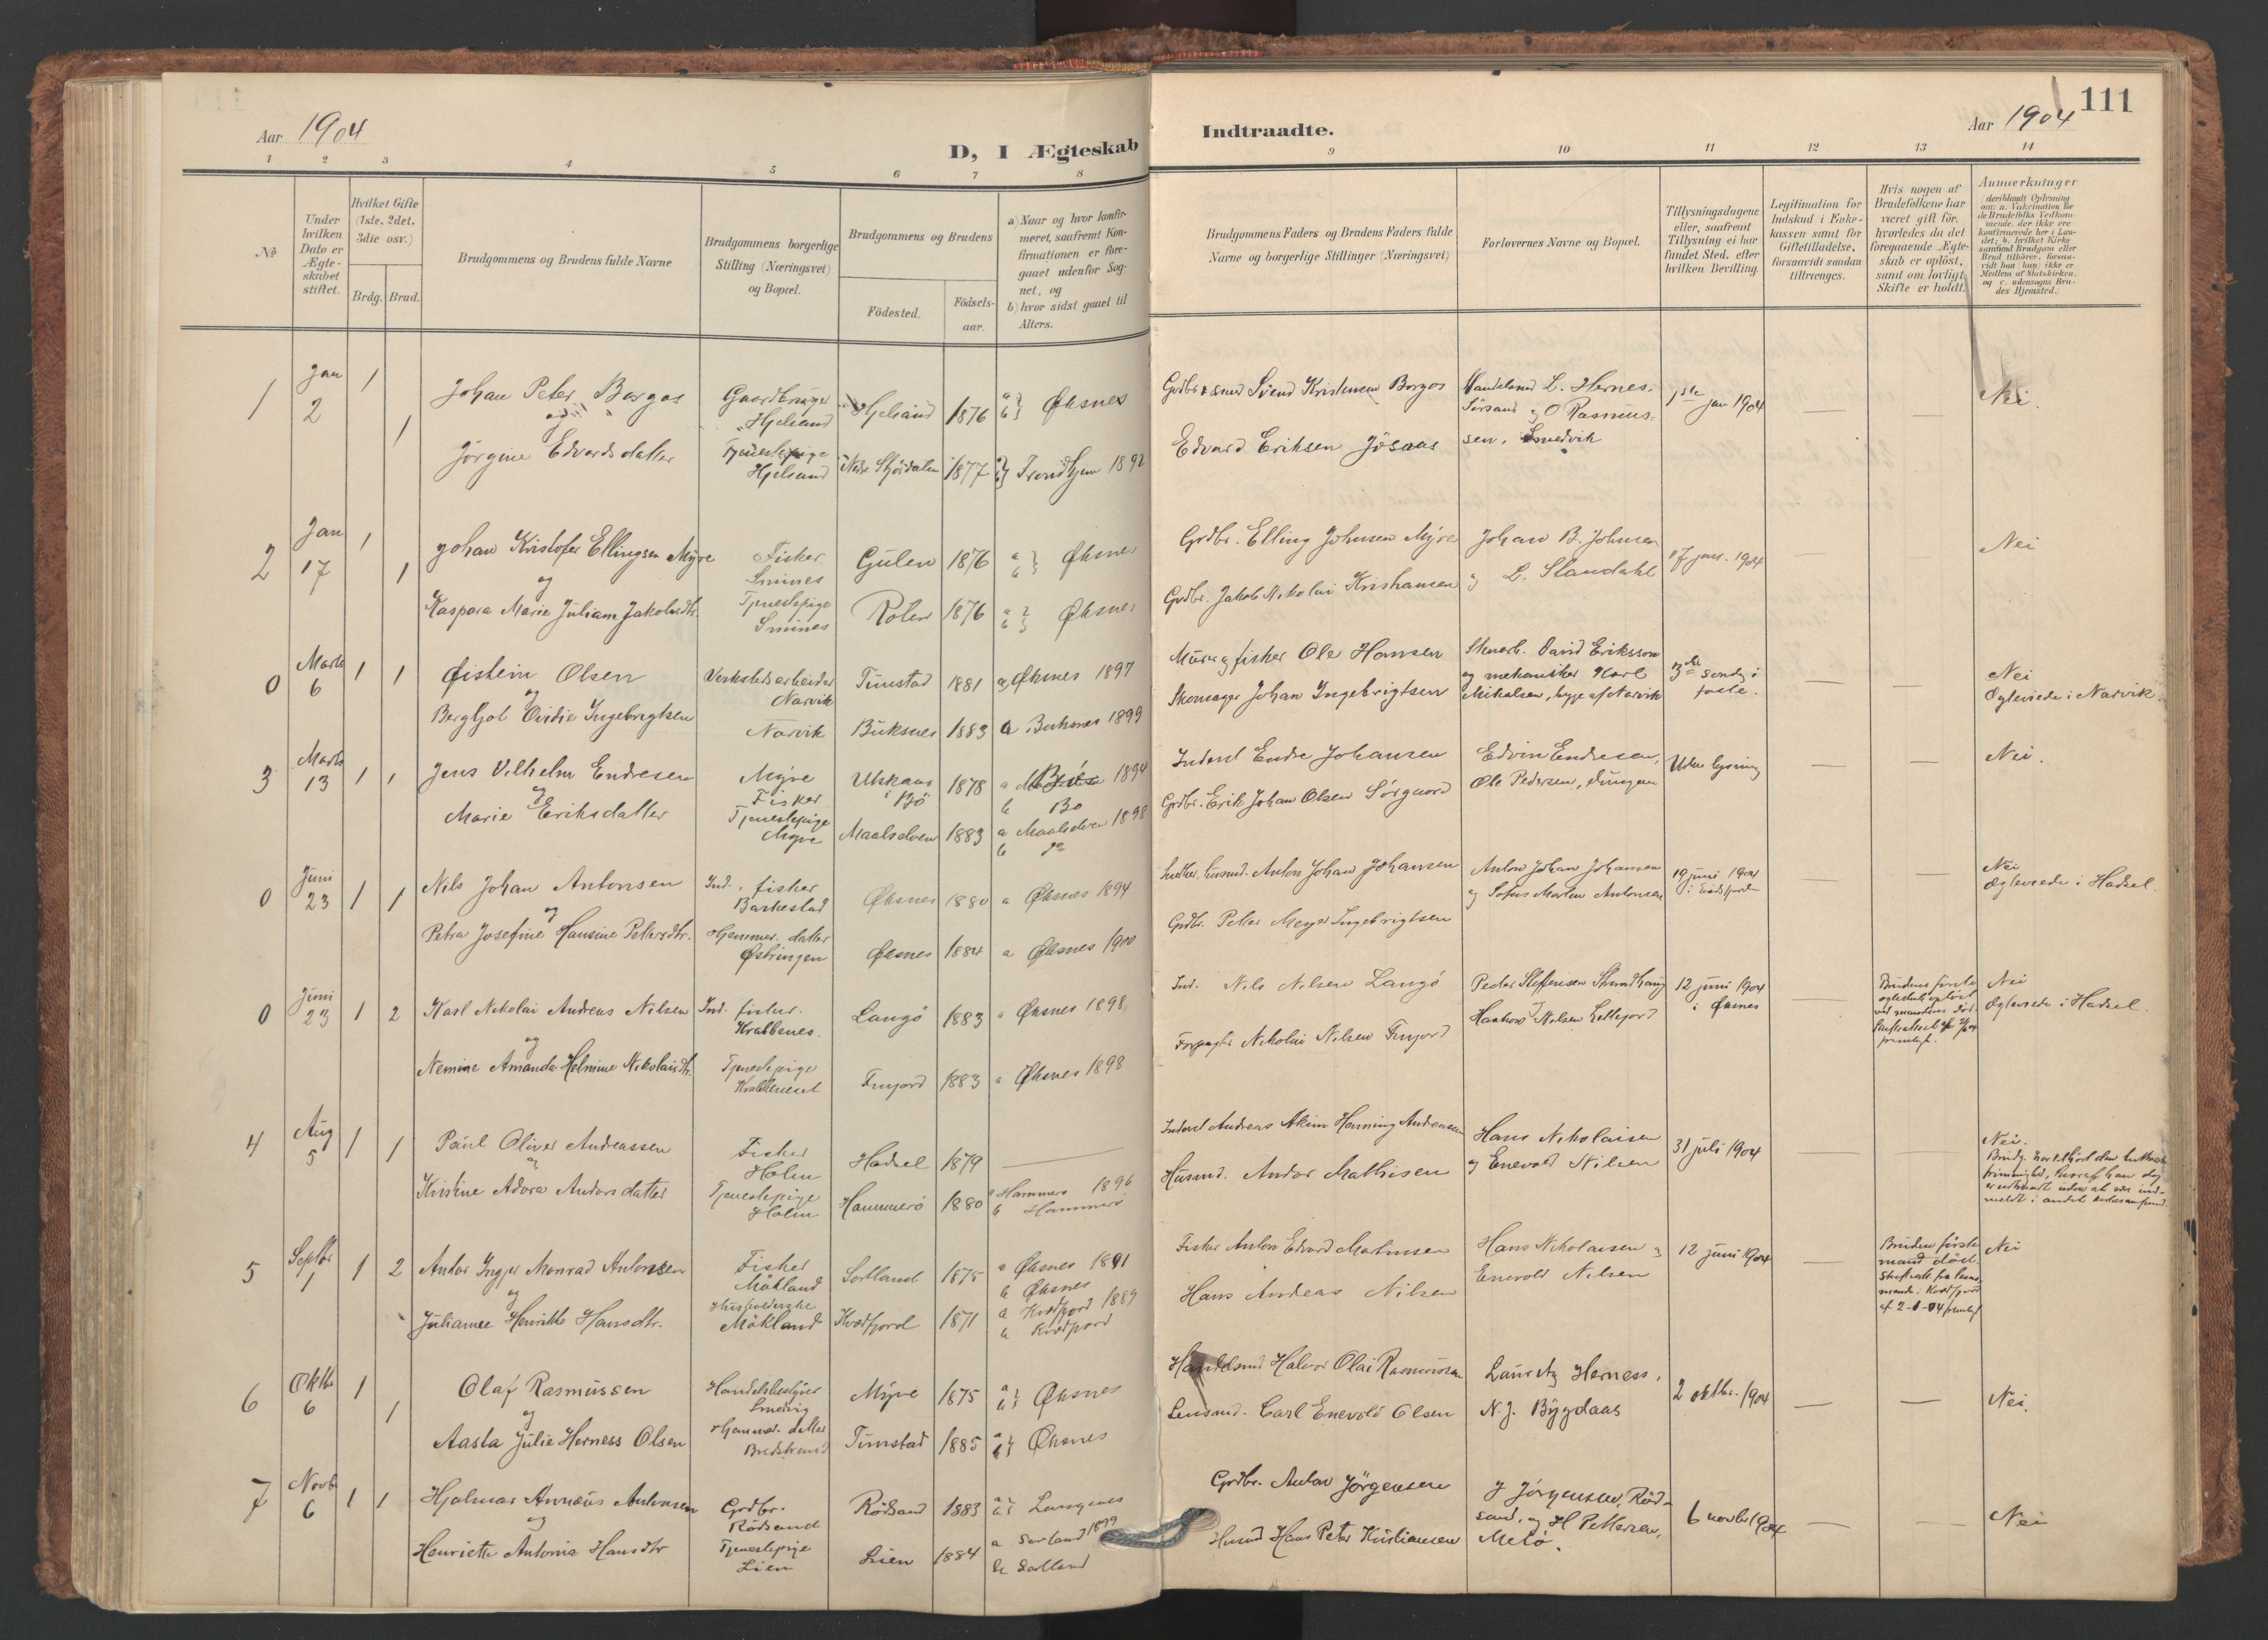 111
Aar 1904
D, I Ægteskab
Indtraadte.
Aar 1904
1 2 3 4 5 6 7 8 9 10 11 12 13 14
No
Under hvilken Dato er Ægteskabet stiftet.
Hvilket Gifte (1ste, 2det, 3die osv.)
Brdg. Brud.
Brudgommens og Brudens fulde Navne
Brudgommens borgerlige Stilling (Næringsvei) og Bopæl.
Brudgommens og Brudens
Födested.
Födsels-aar.
a) Naar og hvor konfirmeret, saafremt Konfirmationen er foregaaet udenfor Sognet, og
b) hvor sidst gaaet til Alters.
Brudgommens Faders og Brudens Faders fulde Navne og borgerlige Stillinger (Næringsvei)
Forlovernes Navne og Bopæl.
Tillysningsdagene eller, saafremt Tillysning ei har fundet Sted, efter hvilken Bevilling.
Legitimation for Indskud i Enkekassen samt for Giftetilladelse, forsaavidt saadan tiltrænges.
Hvis nogen af Brudefolkene har været gift för, hvorledes da det foregaaende Ægteskab er oplöst, samt om lovligt Skifte er holdt.
Anmerkninger (deriblandt Oplysning om: a. Vakcination for de Brudefolks Vedkommende, der ikke ere konfirmerede her i Landet; b. hvilket Kirkesamfund Brudgom eller Brud tilhörer, forsaavidt han (hun) ikke er Medlem af Statskirken, og c. udensogns Brudes Hjemsted.)
1 Jan 2 1 Johan Peter Borgos Gaardbruger Hjelsand Hjelsand 1876 a b Øksnes Svend Kristensen Borgos Handelsmd L. Hernes, Sörsand og O Rasmussen, Smedvik 1ste jan 1904 — — Nei.
og
1 Jørgine Edvardsdatter Tjenestepige Hjelsand Nedre Stjördalen 1877 Trondhjem 1892 Edvard Eriksen Jösaas
2 Jan 17 1 Johan Kristofer Ellingsen Myre Fisker Smines Gulen 1876 a b Øksnes Grdbr. Elling Johnsen Myre Johan B. Johnsen 17 jan. 1904 — Nei
og
1 Kaspara Marie Juliane Jakobsdtr. Tjenestepige Smines Roten 1876 a b Øksnes Grdbr. Jakob Nikolai Kristiansen og L. Slandahl
0 Marts 6 1 1 Øistein Olsen Verkstedsarbeider Narvik Tunstad 1881 a Øksnes 1897 Murer og fisker Ole Hansen Stenarb. David Eriksson og mekaniker Karl Mikalsen, begge af Narvik 3die sønd. i faste. — — Nei Ægteviede i Narvik.
og
Bergljot Ovidie Ingebrigtsen Narvik Buksnes 1883 a Buksnes 1899 Skomager Johan Ingebrigtsen
3 Marts 13 1 1 Jens Vilhelm Endresen Myre Fisker Utskaar i Bö 1878 a 1894 b Bö Inderst Endre Johansen Edvin Endresen, Ole Pedersen, Uden lysning — — Nei.
og
Marie Eriksdatter Tjenestepige Myre Maalselven 1883 a Maalselven 1898 b do Grdbr. Erik Johan Olsen Sörgaard
0 Juni 23 1 1 Nils Johan Antonsen Ind. fisker Barkestad Øksnes 1880 a Øksnes 1894 Anton Johan Johansen Anton Johan Johansen og Sofus Morten Antonsen 19 juni 1904 i — — Nei Ægteviede i Hadsel.
og
Petra Josefine Hansine Petersdtr. Hjemmev. datter Østringen Øksnes 1884 a Øksnes 1900 Grdbr. Peter Meyer Ingebrigtsen
0 Juni 23 1 2 Karl Nikolai Andreas Nilsen Ind. fisker. Krabbenes. Langö 1883 a Øksnes 1898 Ind. Nils Nilsen Langö Peder Steffensen 12 juni 1904 i Øksnes — Brudens første ægteskab opløst ved mandens død. Nei Ægteviede i Hadsel
og
Nemine Amanda Helmine Nikolaisdtr. Tjenestepige Krabbeneset Finjord 1883 a Øksnes 1898 Forpagter Nikolai Nilsen Finjord Nilsen
4 Aug 5 1 1 Paul Oliver Andreassen Fisker Holm Hadsel 1879 — Inderst Andreas Henning Andreassen Hans Nikolaisen og Enevold Nilsen 31 juli 1904 — Nei. Brudg. har tilhørt den luthersk frimenighed, hvoraf han dog er udtraadt uden at være indmeldt i andet kirkesamfund
og
Kristine Adora Andorsdatter Tjenestepige Holm Hammerö 1880 a Hammerö 1896 b Hammerö Husmd. Andor Mathisen
5 Septbr 1 1 2 Andor Inger Monrad Antonsen Fisker Mökland Sortland 1875 a Øksnes 1891 b Øksnes Fisker Anton Edvard Hans Nikolaisen og Enevold Nilsen 12 juni 1904 — Bruden første mand död. Nei
og
Julianne Henrikke Hansdtr. Mökland Kvædfjord 1871 a Kvædfjord 1889 Kvædfjord Hans Andreas Nilsen
6 Oktbr 6 1 Olaf Rasmussen Handelsbestyrer Smedvig Myre 1875 a b Øksnes Handelsmd Halvor Olai Rasmussen Lauritz Herness, N. J. Bygdaas 2 oktbr. 1904 — — Nei.
og
1 Aasta Julie Herness Olsen Hjemmev. datter Bredstrand Tunstad 1885 a b Øksnes Lensmd. Carl Enevold Olsen
7 Novbr 6 1 1 Hjalmar Annæus Antonsen Grdbr. Rödsand Rödsand 1883 a b Langenes Grdbr. Anton Jörgensen J Jörgensen, Rödsand, og H Pettersen, Melö. 6 novbr 1904 — — Nei
og
Henriette Antonie Hansdtr Tjenestepige Lien Lien 1884 a Sortland 1899 b Sortland Husmd Hans Peter Kristiansen